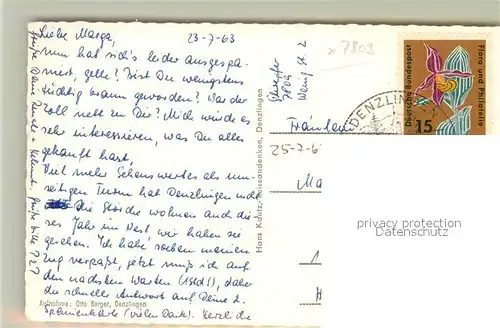 Liebe Marga, 23-7-63
nun hat sich's leider ausgespa-
nnert, gelle? Bist Du wenigstens
tüchtig braun geworden? War der
Zoll nett zu Dir? Mich würde es
sehr interessieren, was Du alles
gekauft hast.
Viel mehr Sehenswertes als um-
seitigen Turm hat Denzlingen nicht
Die Störche wohnen auch die-
ses Jahr im Nest wir haben sie
gesehen. Ich habe soeben meinen
Zug verpaßt, jetzt muß ich auf
den nächsten warten (1 Std!), daher
die schneller Antwort auf Deine 2.
Spanienkarte (vielen Dank). Herzliche
Aufnahme: Otto Berger, Denzlingen
Hans Kautz, Reiseandenken, Denzlingen
7809
DENZLINGEN
Fräulein
25-7-6
Ma
Deutsche Bundespost
15
Flora und Philatelie
privacy protection
Datenschutz